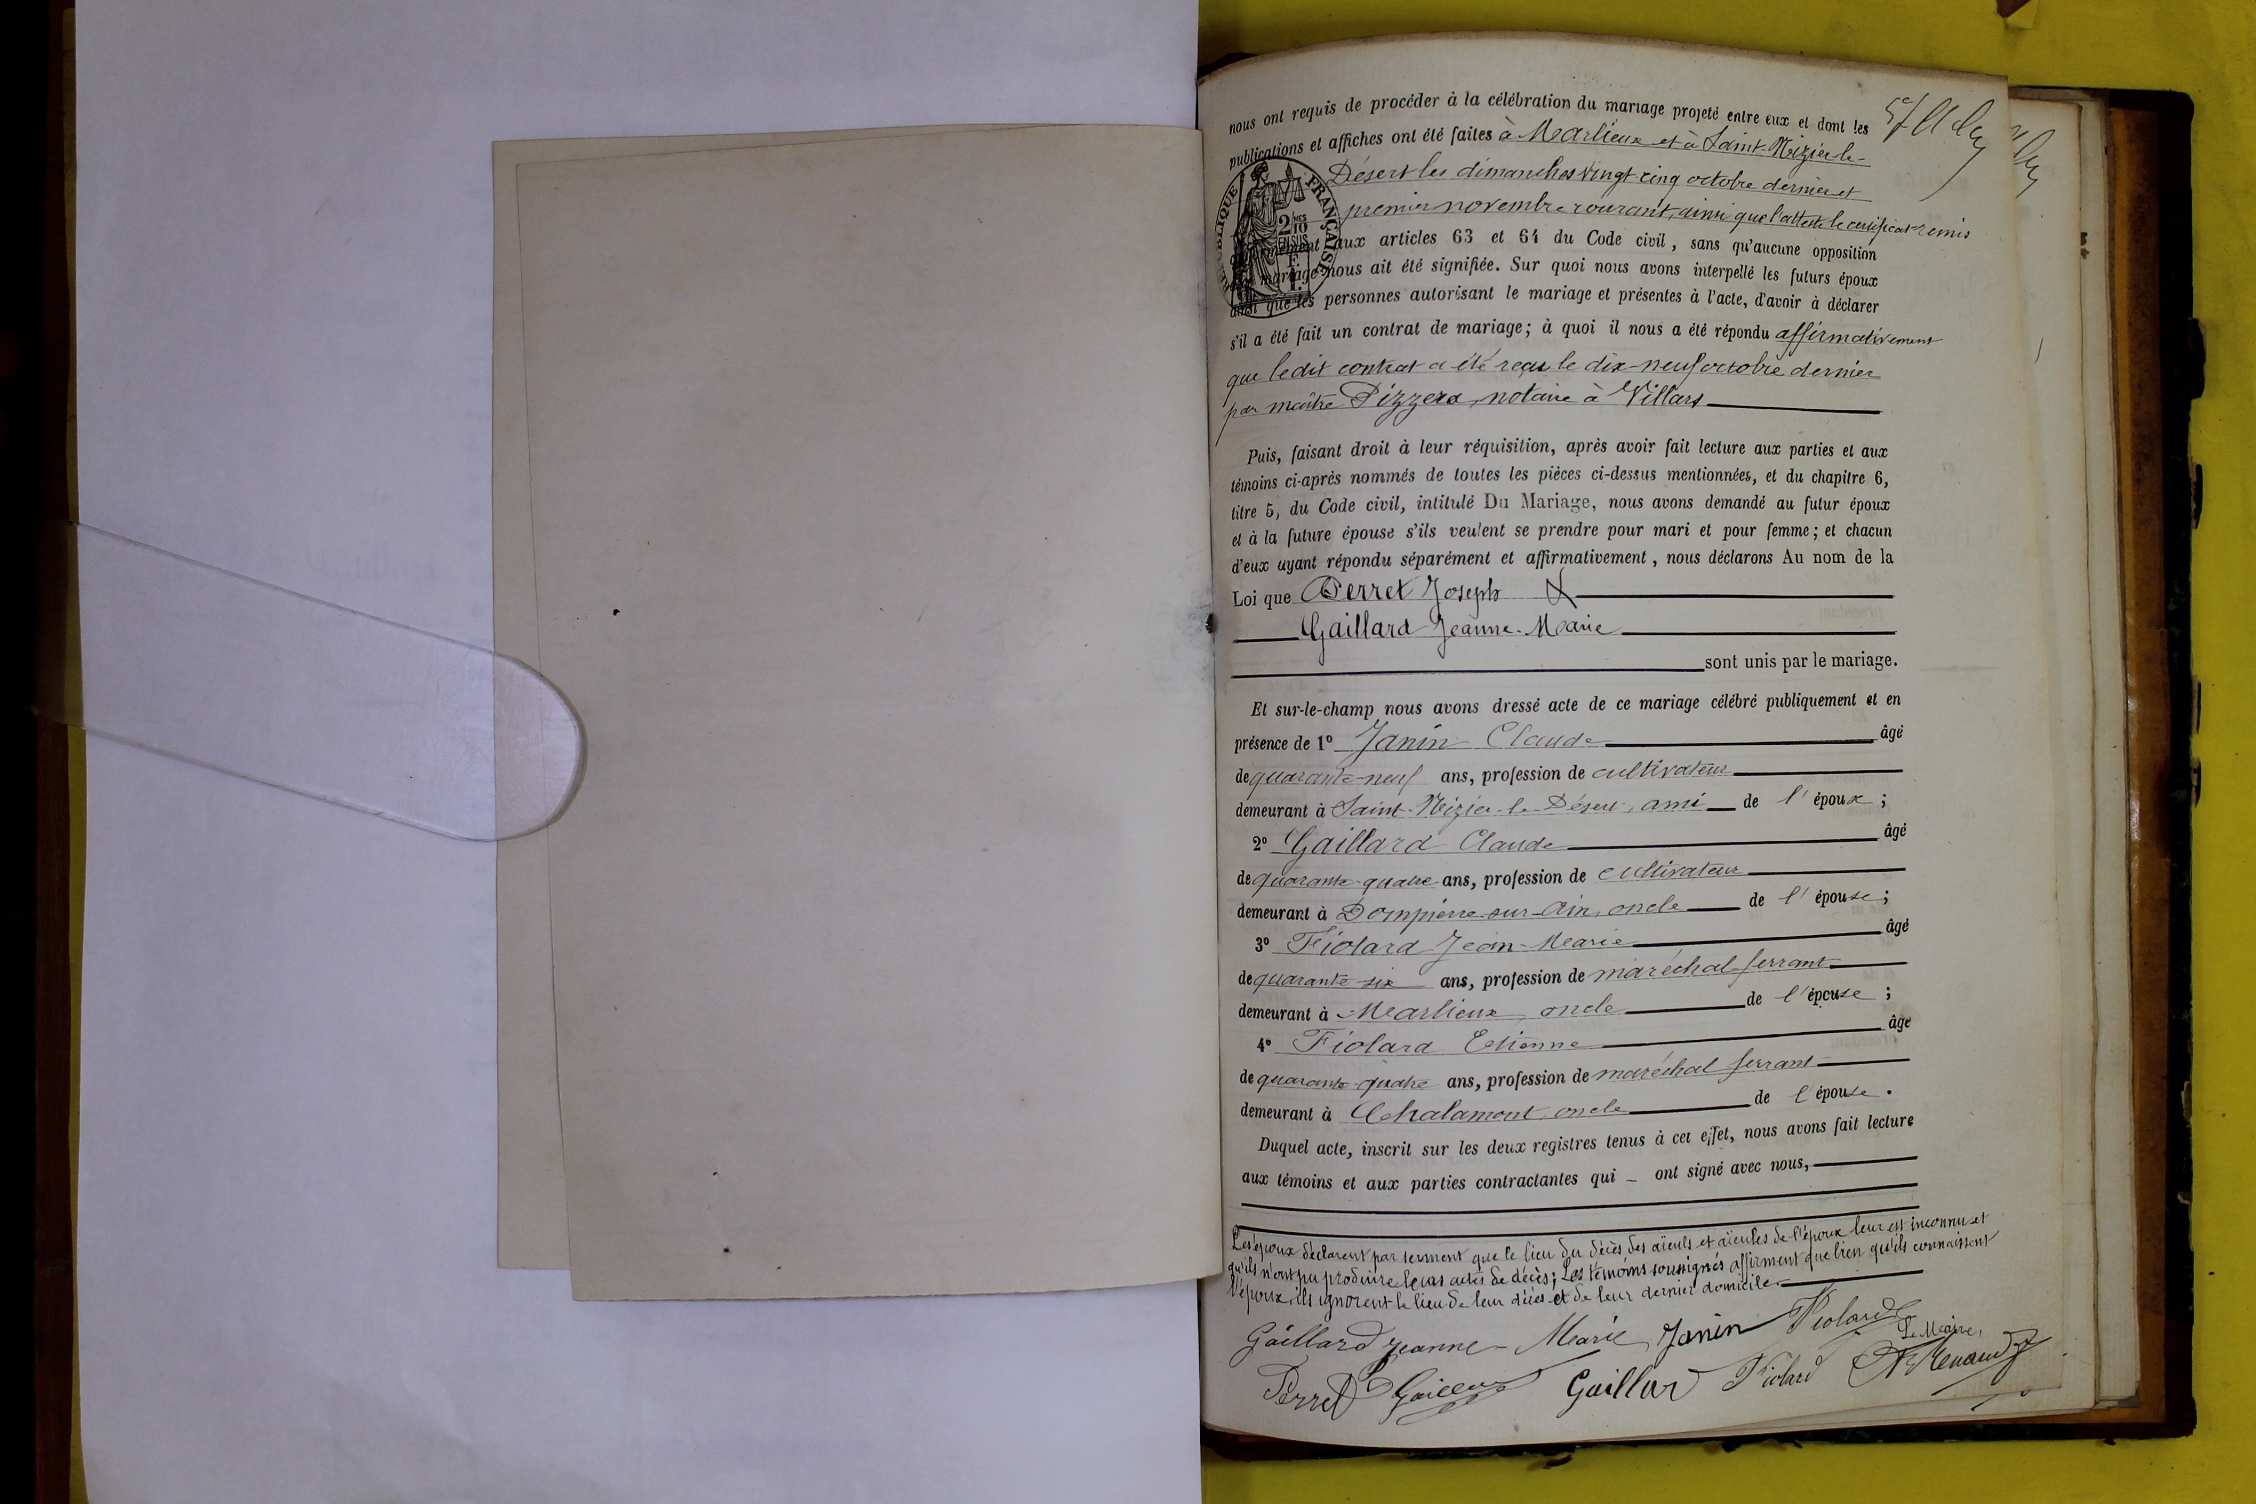 nous ont requis de procéder à la célébration du mariage projeté entre eux et dont les
publications et affiches ont été faites à Marlieux et à Saint-Nizier-le-
Désert les dimanches vingt cinq octobre dernier et
premier novembre courant, ainsi que l'atteste le certificat remis
aux articles 63 et 64 du Code civil, sans qu'aucune opposition
mariage nous ait été signifiée. Sur quoi nous avons interpellé les futurs époux
ainsi que les personnes autorisant le mariage et présentes à l'acte, d'avoir à déclarer
s'il a été fait un contrat de mariage; à quoi il nous a été répondu affirmativement
que ledit contrat a été reçu le dix-neuf octobre dernier
par maître Pizzera, notaire à Villars
RÉPUBLIQUE FRANÇAISE
Puis, faisant droit à leur réquisition, après avoir fait lecture aux parties et aux
témoins ci-après nommés de toutes les pièces ci-dessus mentionnées, et du chapitre 6,
titre 5, du Code civil, intitulé Du Mariage, nous avons demandé au futur époux
et à la future épouse s'ils veulent se prendre pour mari et pour femme; et chacun
d'eux ayant répondu séparément et affirmativement, nous déclarons Au nom de la
Loi que Perret Joseph &
Gaillard Jeanne-Marie
sont unis par le mariage.
Et sur-le-champ nous avons dressé acte de ce mariage célébré publiquement et en
présence de 1° Janin Claude âgé
de quarante-neuf ans, profession de cultivateur
demeurant à Saint-Nizier-le-Désert, ami de l'époux;
2° Gaillard Claude âgé
de quarante-quatre ans, profession de cultivateur
demeurant à Dompierre-sur-Ain, oncle de l'épouse;
3° Fiolard Jean-Marie âgé
de quarante-six ans, profession de maréchal-ferrant
demeurant à Marlieux, oncle de l'épouse;
4° Fiolard Etienne âgé
de quarante-quatre ans, profession de maréchal ferrant
demeurant à Chalamont, oncle de l'épouse.
Duquel acte, inscrit sur les deux registres tenus à cet effet, nous avons fait lecture
aux témoins et aux parties contractantes qui - ont signé avec nous,
Les époux déclarent par serment que le lieu du décès des aïeuls et aïeules de l'époux leur est inconnu et
qu'ils n'ont pu produire leurs actes de décès; Les témoins soussignés affirment que bien qu'ils connaissent
l'époux, ils ignorent le lieu de leur décès et de leur dernier domicile.
Gaillard Jeanne-Marie Janin Fiolard
Le Maire,
Perret Gaillard Gaillard Fiolard